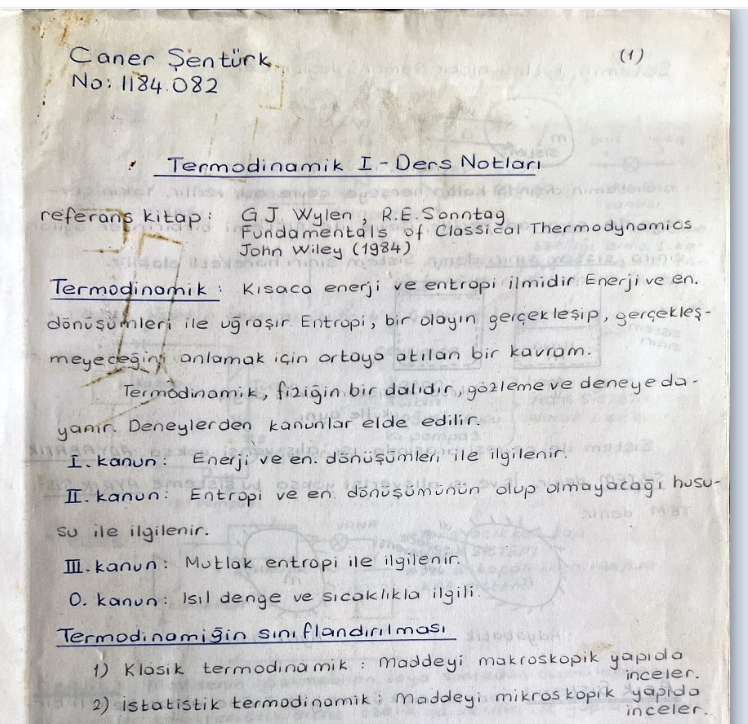 Caner Şentürk
(1)
No: 1184.082
Termodinamik I - Ders Notları
referans kitap: G.J. Wylen, R.E. Sonntag
Fundamentals of Classical Thermodynamics
John Wiley (1984)
Termodinamik: Kısaca enerji ve entropi ilmidir. Enerji ve en.
dönüşümleri ile uğraşır Entropi, bir olayın gerçekleşip, gerçekleş-
meyeceğini anlamak için ortaya atılan bir kavram.
Termodinamik, fiziğin bir dalıdır, gözleme ve deneye da-
yanır. Deneylerden kanunlar elde edilir.
I. kanun: Enerji ve en. dönüşümleri ile ilgilenir.
II. kanun: Entropi ve en dönüşümünün olup olmayacağı husu-
su ile ilgilenir.
III. kanun: Mutlak entropi ile ilgilenir.
0. kanun: Isıl denge ve sıcaklıkla ilgili.
Termodinamiğin sınıflandırılması
1) Klasik termodinamik: Maddeyi makroskopik yapıda
inceler.
2) istatistik termodinamik: Maddeyi mikroskopik yapıda
inceler.